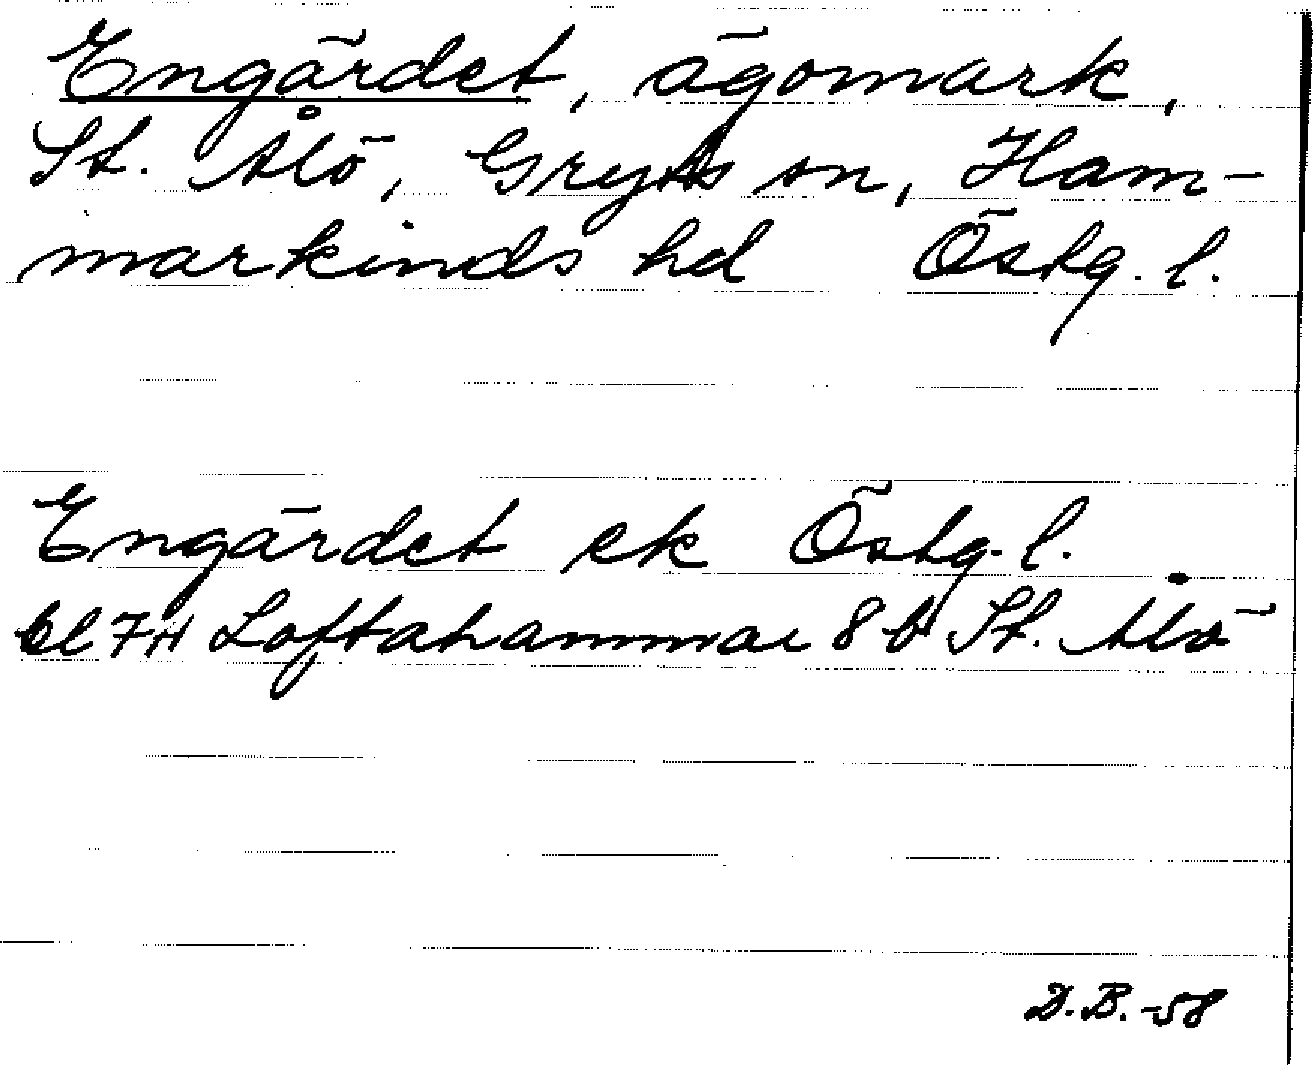 Engärdet, ägomark,
St. Ålö, Gryts sn, Ham-
markinds hd Östg. l.
Engärdet ek Östg. l.
bl 7H Loftahammar 8 b St. Ålö
D.B. -58